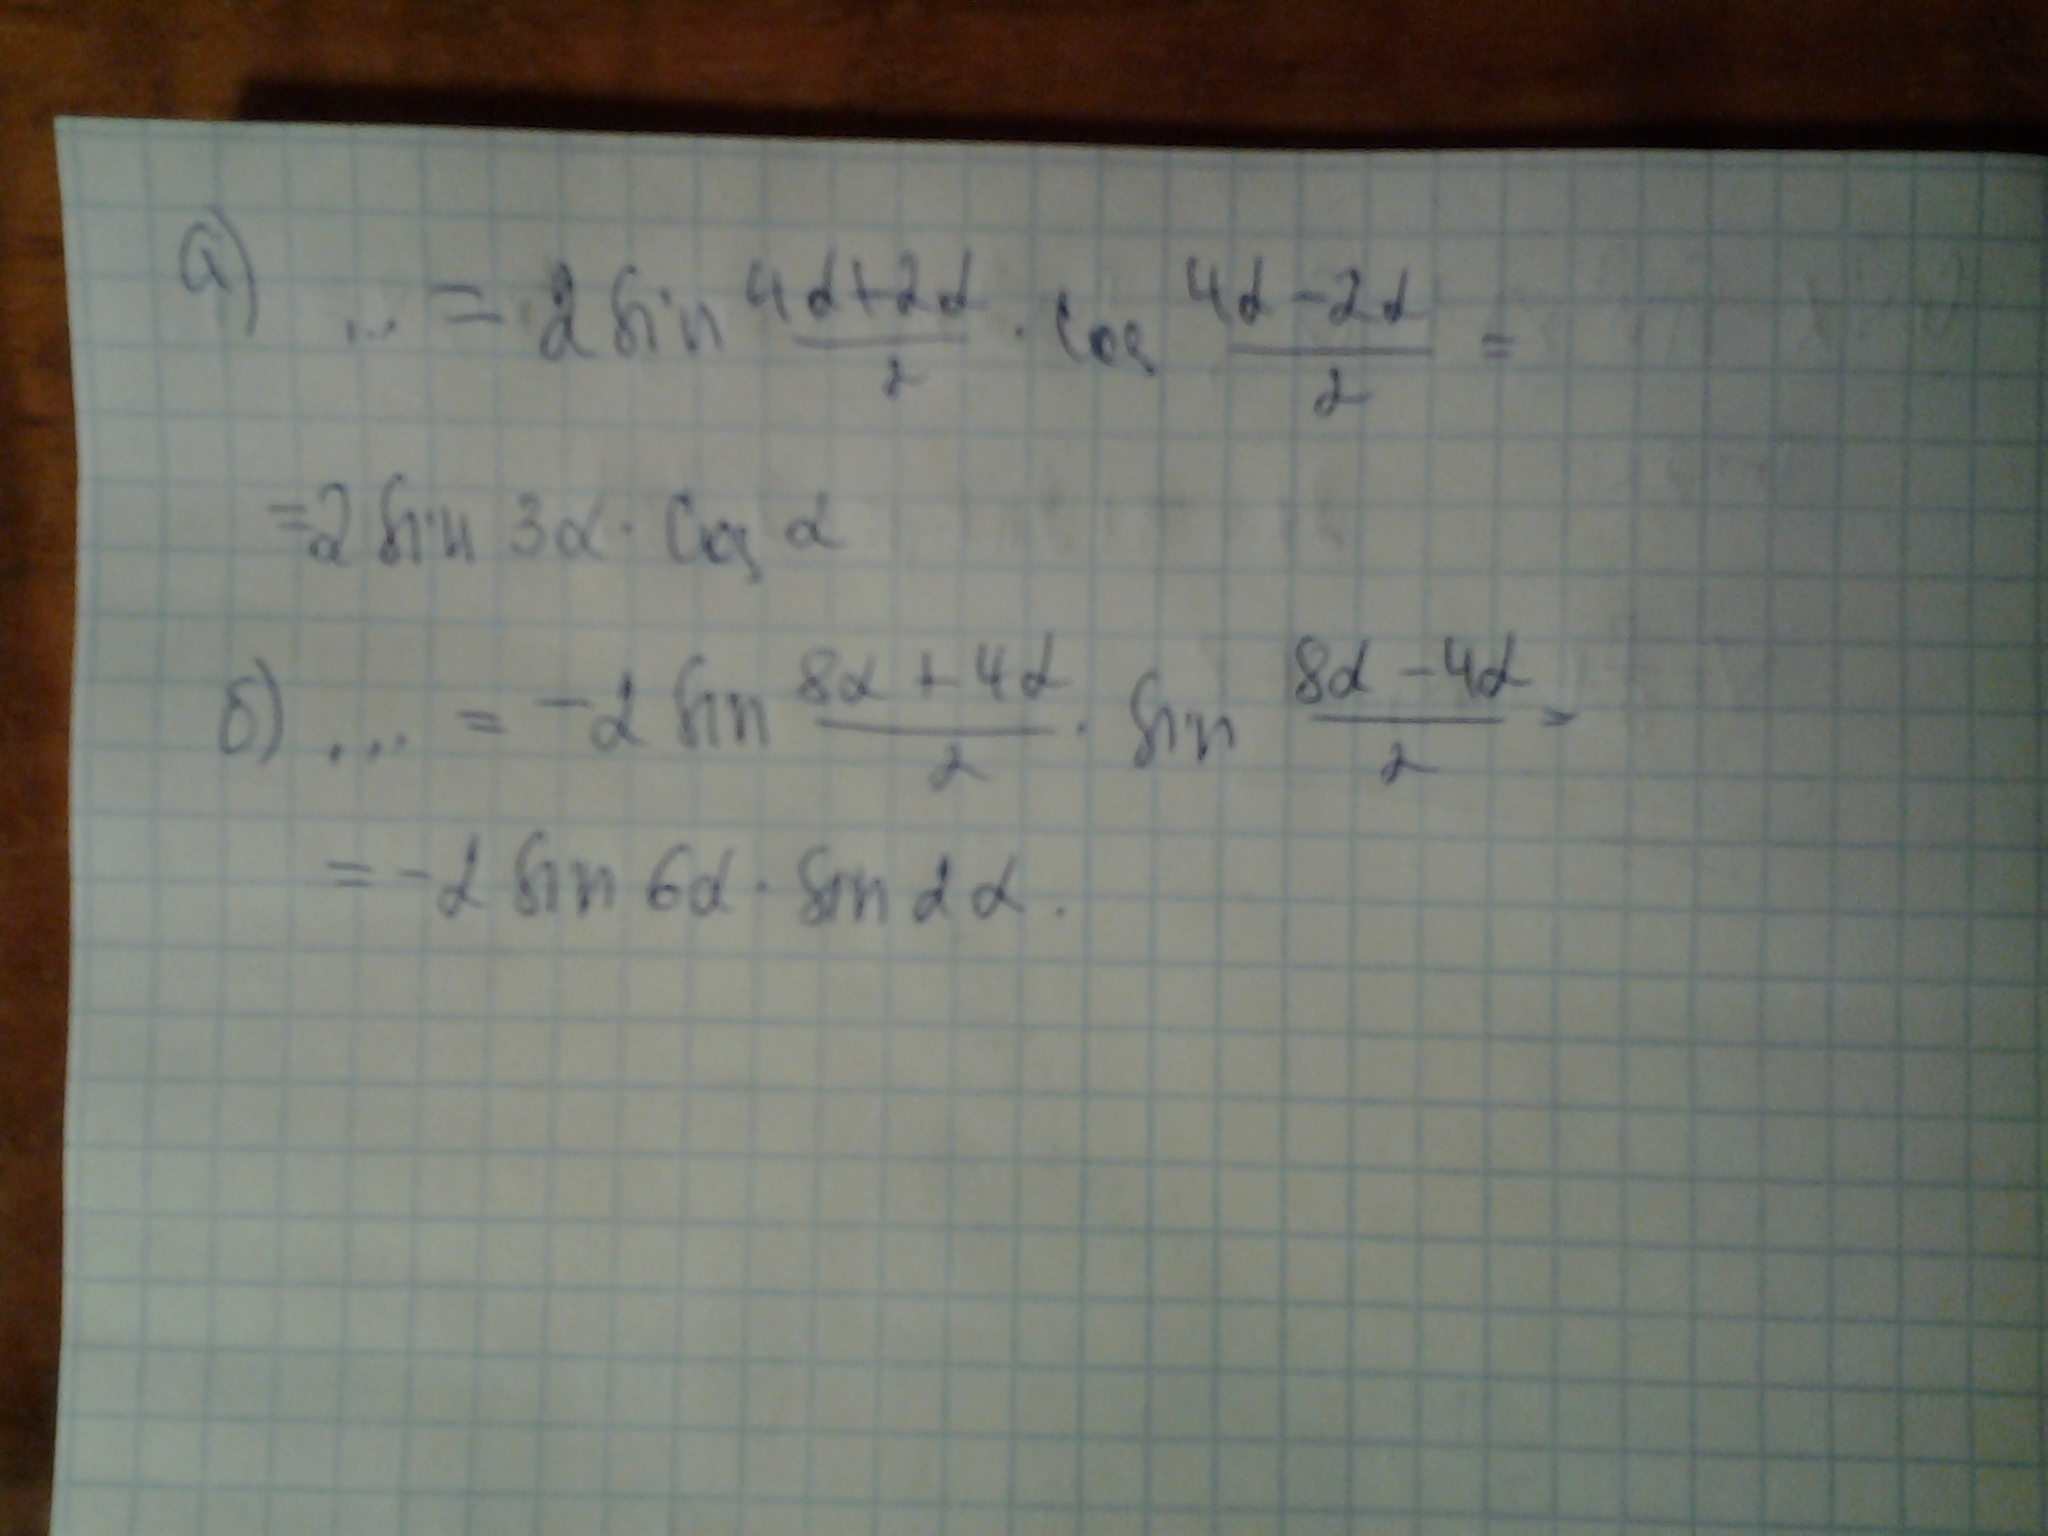 а) ... = 2 sin (4α+2α)/2 · cos (4α-2α)/2 =
=2 sin 3α · cos α
б) ... = -2 sin (8α+4α)/2 · sin (8α-4α)/2 =
= -2 sin 6α · sin 2α.